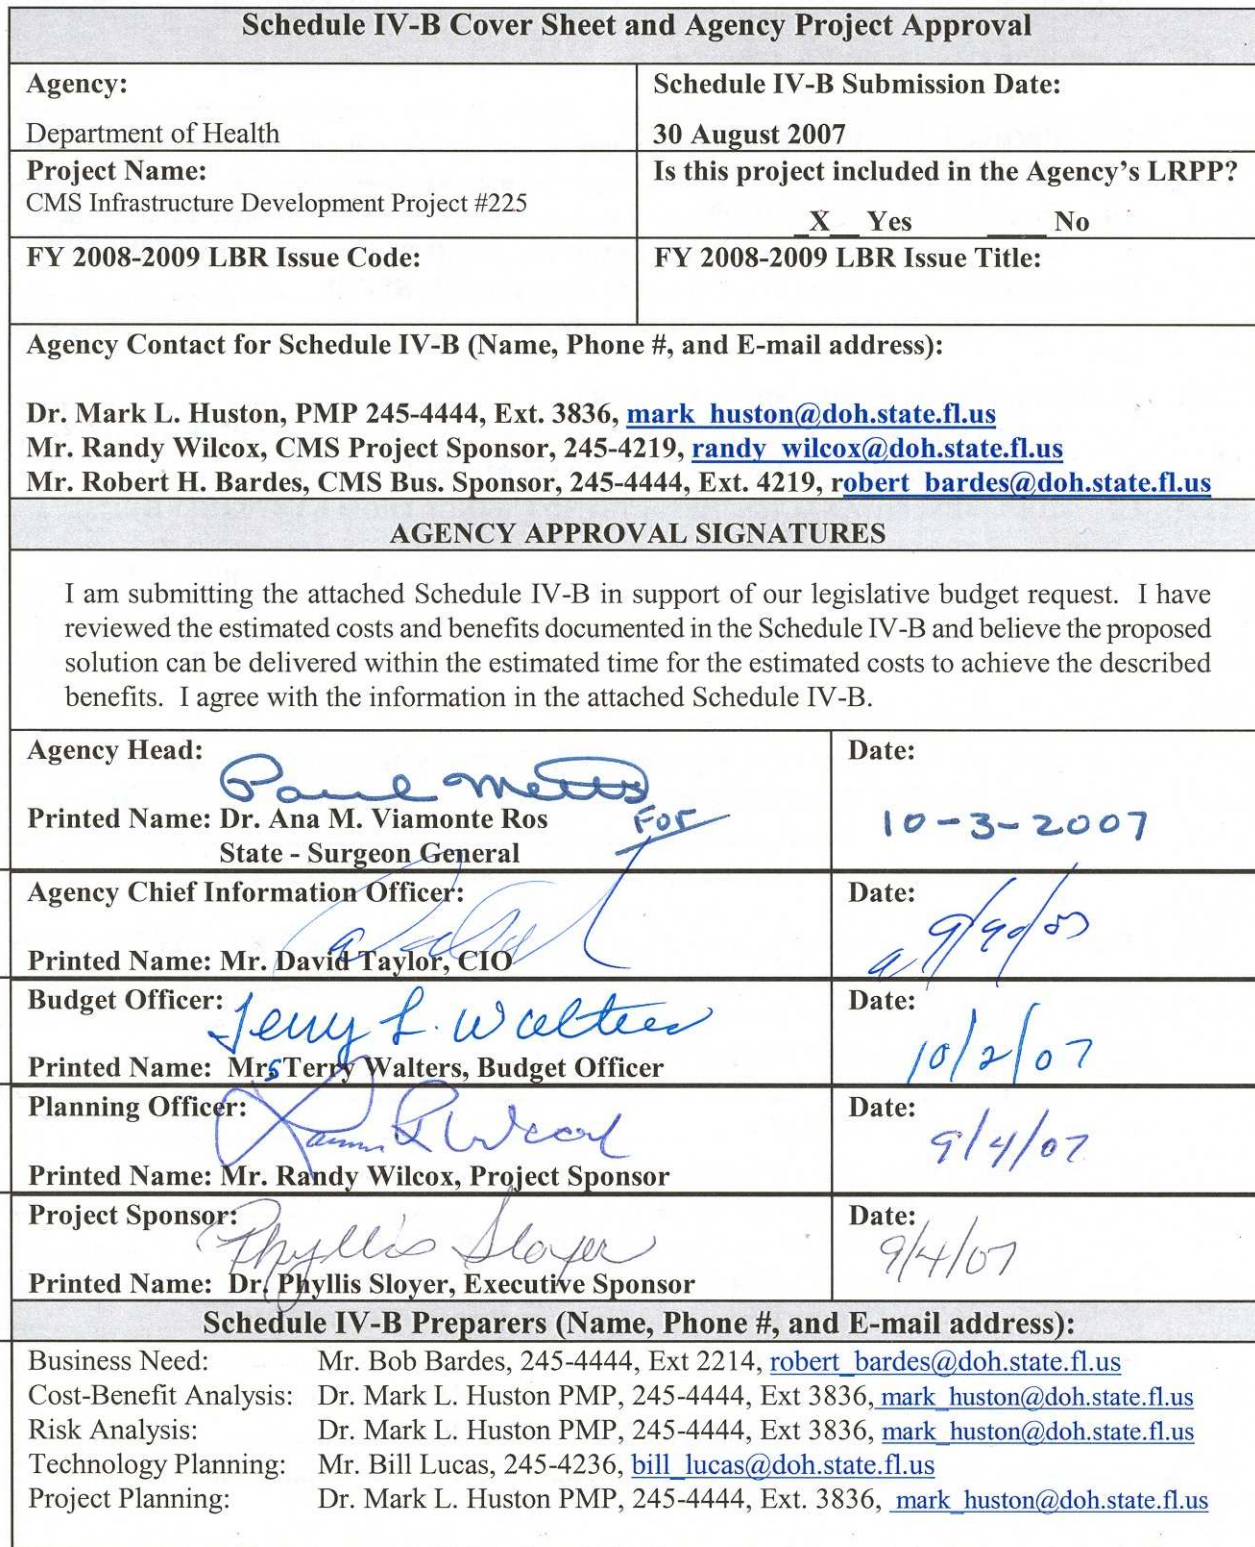 Schedule IV-B Cover Sheet and Agency Project Approval
Agency:
Department of Health
Schedule IV-B Submission Date:
30 August 2007
Project Name:
CMS Infrastructure Development Project #225
Is this project included in the Agency's LRPP?
_X__ Yes ____ No
FY 2008-2009 LBR Issue Code:
FY 2008-2009 LBR Issue Title:
Agency Contact for Schedule IV-B (Name, Phone #, and E-mail address):
Dr. Mark L. Huston, PMP 245-4444, Ext. 3836, mark_huston@doh.state.fl.us
Mr. Randy Wilcox, CMS Project Sponsor, 245-4219, randy_wilcox@doh.state.fl.us
Mr. Robert H. Bardes, CMS Bus. Sponsor, 245-4444, Ext. 4219, robert_bardes@doh.state.fl.us
AGENCY APPROVAL SIGNATURES
I am submitting the attached Schedule IV-B in support of our legislative budget request. I have
reviewed the estimated costs and benefits documented in the Schedule IV-B and believe the proposed
solution can be delivered within the estimated time for the estimated costs to achieve the described
benefits. I agree with the information in the attached Schedule IV-B.
Agency Head:
Paul Metts
For
Printed Name: Dr. Ana M. Viamonte Ros
State - Surgeon General
Date:
10-3-2007
Agency Chief Information Officer:
Printed Name: Mr. David Taylor, CIO
Date:
Budget Officer:
Terry L. Walters
Printed Name: Mrs Terry Walters, Budget Officer
Date:
10/2/07
Planning Officer:
Printed Name: Mr. Randy Wilcox, Project Sponsor
Date:
9/4/07
Project Sponsor:
Phyllis Sloyer
Printed Name: Dr. Phyllis Sloyer, Executive Sponsor
Date:
9/4/07
Schedule IV-B Preparers (Name, Phone #, and E-mail address):
Business Need: Mr. Bob Bardes, 245-4444, Ext 2214, robert_bardes@doh.state.fl.us
Cost-Benefit Analysis: Dr. Mark L. Huston PMP, 245-4444, Ext 3836, mark_huston@doh.state.fl.us
Risk Analysis: Dr. Mark L. Huston PMP, 245-4444, Ext 3836, mark_huston@doh.state.fl.us
Technology Planning: Mr. Bill Lucas, 245-4236, bill_lucas@doh.state.fl.us
Project Planning: Dr. Mark L. Huston PMP, 245-4444, Ext. 3836, mark_huston@doh.state.fl.us